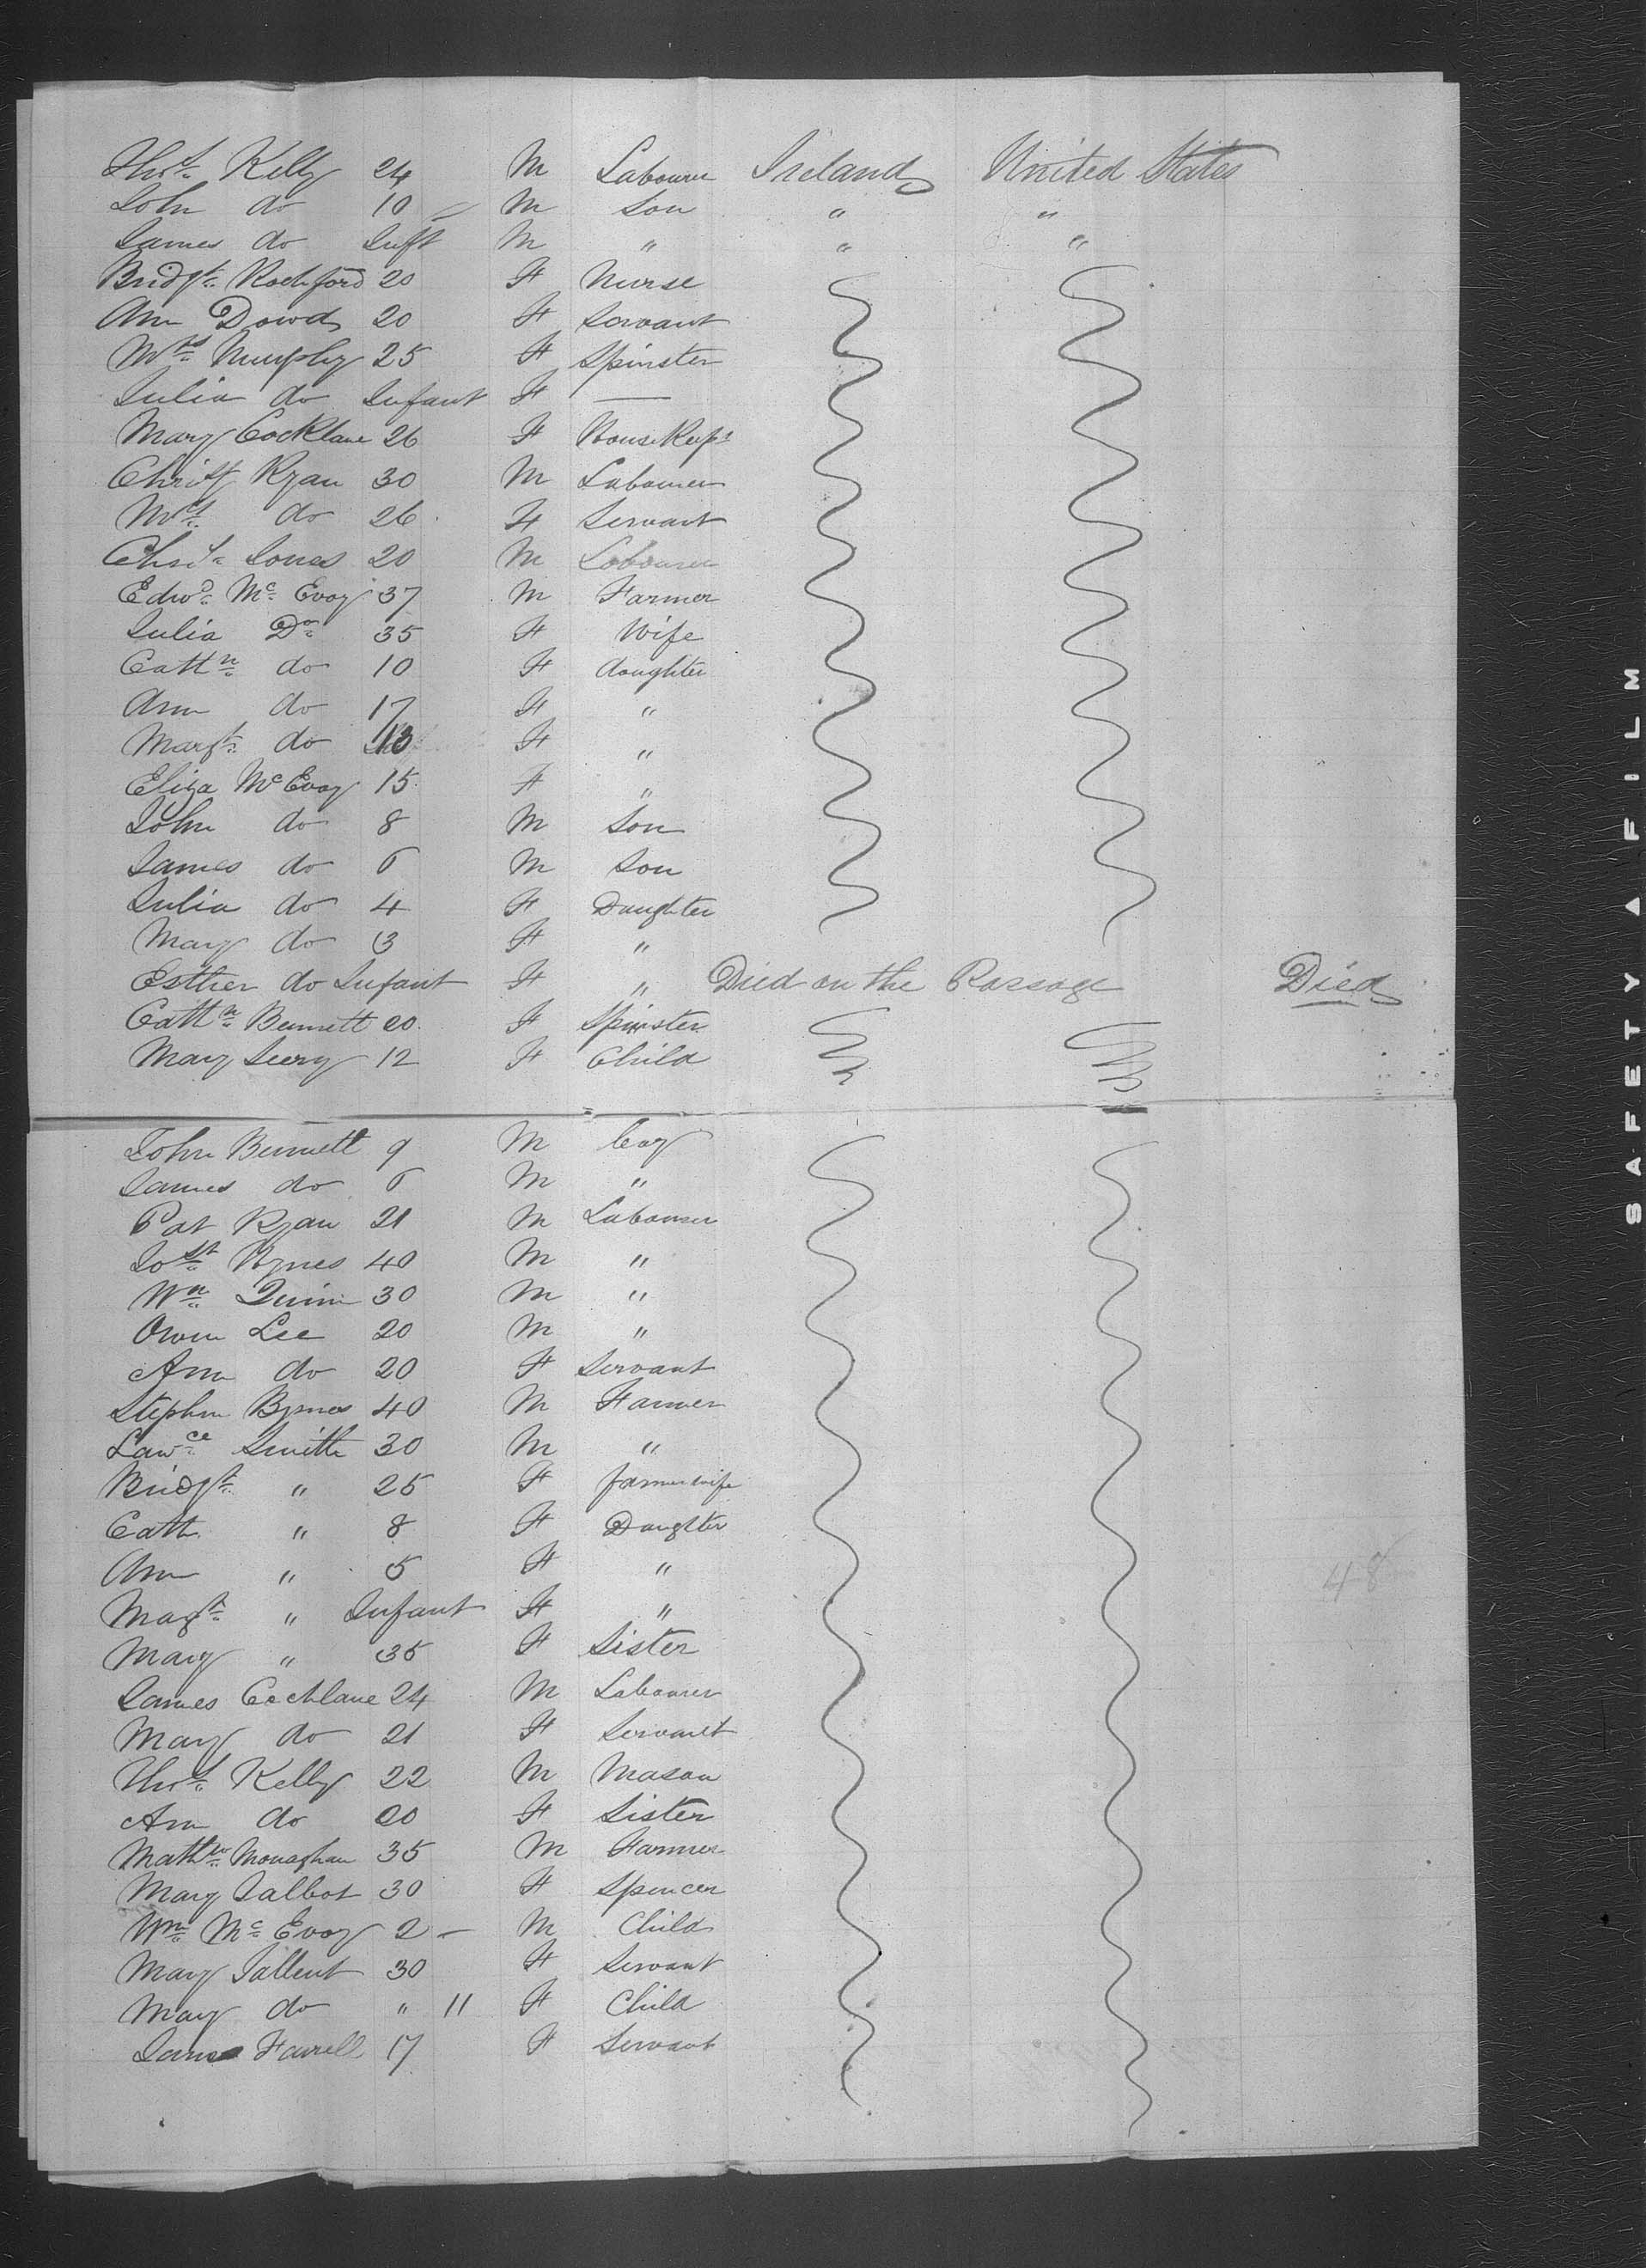 Thos. Kelly 24 M Labourer Ireland United States
John do 10 M Son " "
James do Inft M " " "
Bridgt. Rochford 20 F Nurse
Ann Dowd 20 F Servant
Mrs. Murphy 25 F Spinster
Julia do Infant F —
Mary Cocklane 26 F Housekeepr
Christ Ryan 30 M Labourer
Mgt. do 26 F Servant
Chrisr. Jones 20 M Labourer
Edwd. Mc. Evoy 37 M Farmer
Julia Do. 35 F Wife
Cathn. do 10 F daughter
Ann do 17 F "
Margt. do 13 F "
Eliza McEvoy 15 F "
John do 8 M Son
James do 6 M Son
Julia do 4 F Daughter
Mary do 3 F "
Esther do Infant F " Died on the Passage Died
Cathn. Bennett 20 F Spinster
Mary Seery 12 F Child
John Bennett 9 M boy
James do 6 M "
Pat Ryan 21 M Labourer
Josh. Byrnes 40 M "
Wm. Quinn 30 M "
Owen Lee 20 M "
Ann do 20 F Servant
Stephen Byrnes 40 M Farmer
Lawce. Smith 30 M "
Bridgt. " 25 F farmer wife
Cath. " 8 F Daughter
Ann " 5 F "
Margt. " Infant F "
Mary " 35 F Sister
James Cocklane 24 M Labourer
Mary do 21 F Servant
Thos. Kelly 22 M Mason
Ann do 20 F Sister
Matthw. Monaghan 35 M Farmer
Mary Talbot 30 F Spencer
Wm. Mc. Evoy 2 – M Child
Mary Tallent 30 F Servant
Mary do " 11 F Child
Farrell 17 F Servant
48
SAFETY FILM